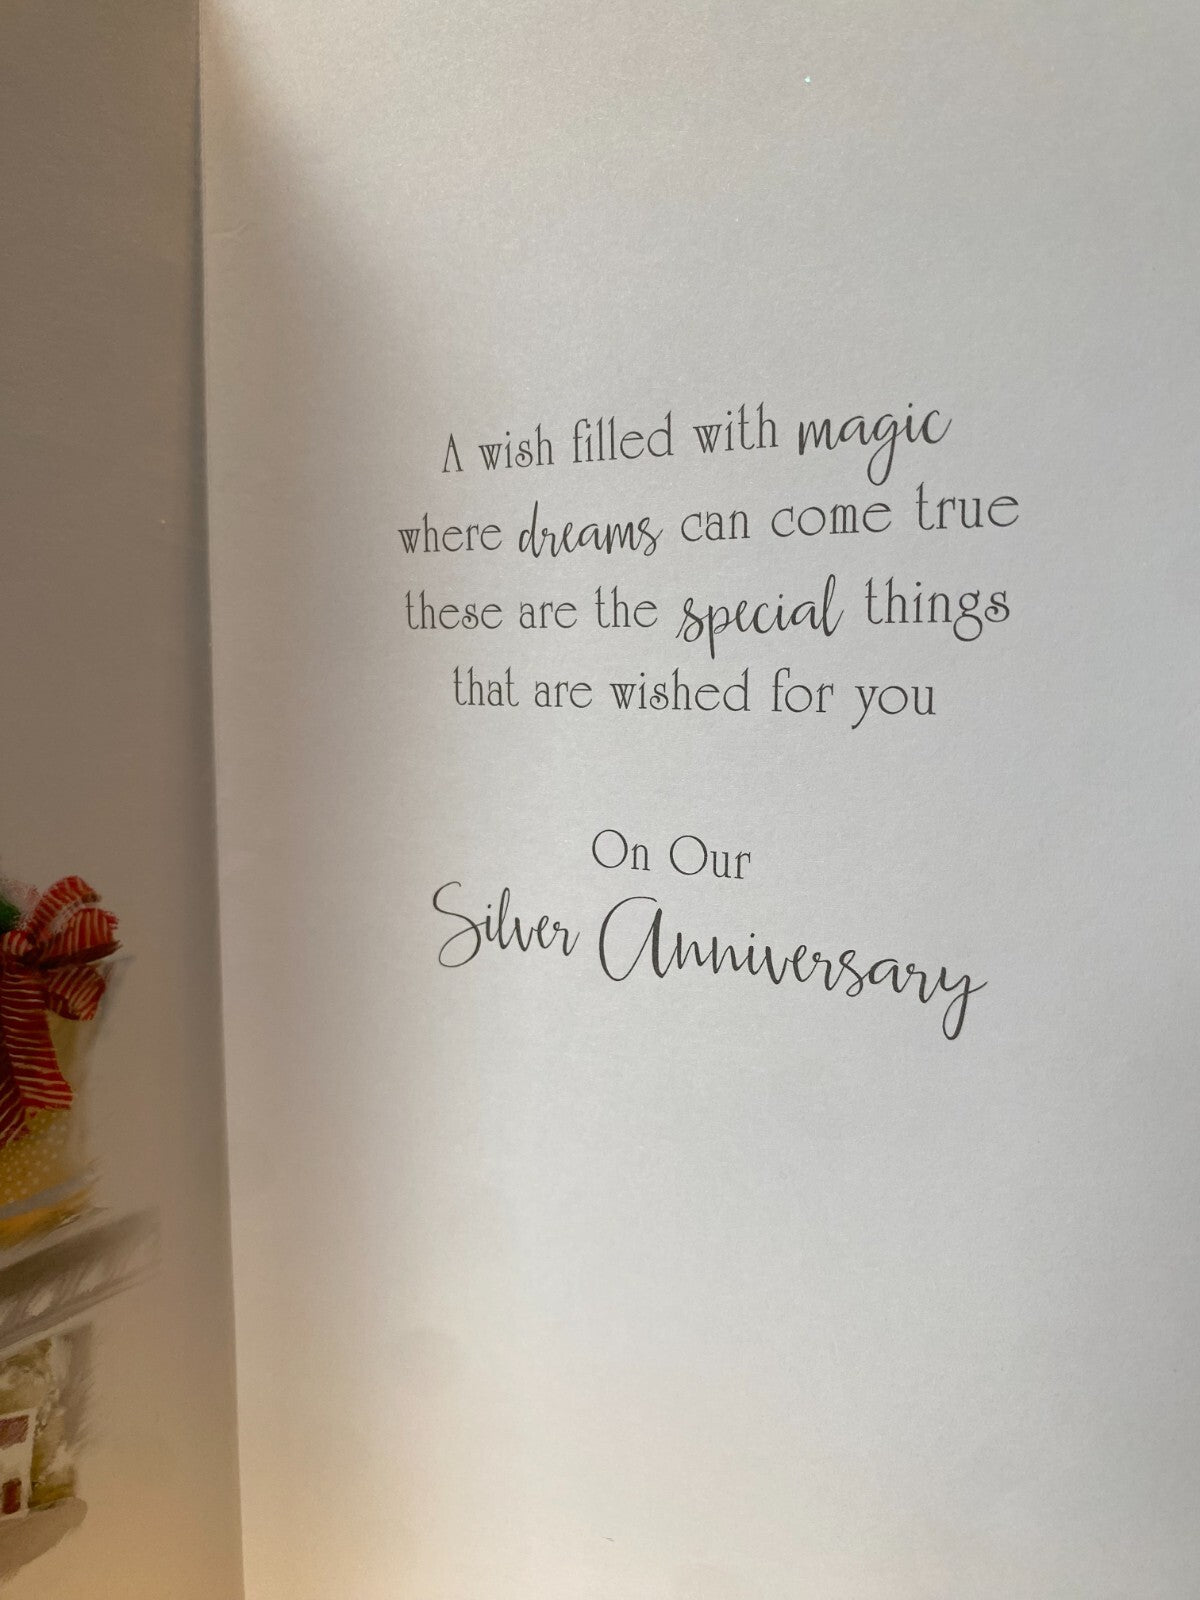 A wish filled with magic
where dreams can come true
these are the special things
that are wished for you
On Our
Silver Anniversary